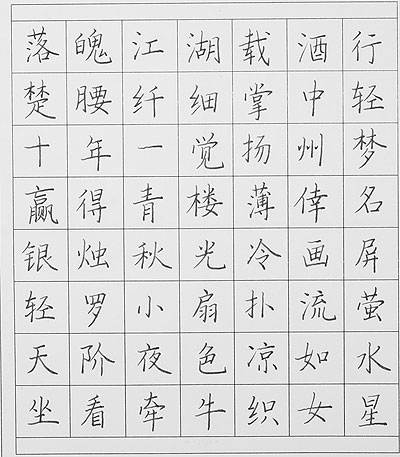 落魄江湖载酒行
楚腰纤细掌中轻
十年一觉扬州梦
赢得青楼薄倖名
银烛秋光冷画屏
轻罗小扇扑流萤
天阶夜色凉如水
坐看牵牛织女星